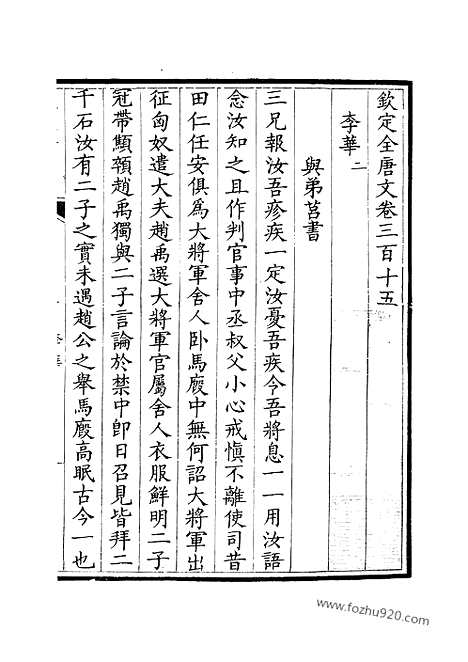 欽定全唐文卷三百十五
李華二
與弟莒書
三兄報汝吾疹疾一定汝憂吾疾今吾將息一一用汝語
念汝知之且作判官事中丞叔父小心戒慎不離使司昔
田仁任安俱為大將軍舍人卧馬廄中無何詔大將軍出
征匈奴遣大夫趙禹選大將軍官屬舍人衣服鮮明二子
冠帶顦顇趙禹獨與二子言論於禁中卽日召見皆拜二
千石汝有二子之實未遇趙公之舉馬廄高眠古今一也
www.fozhu920.com